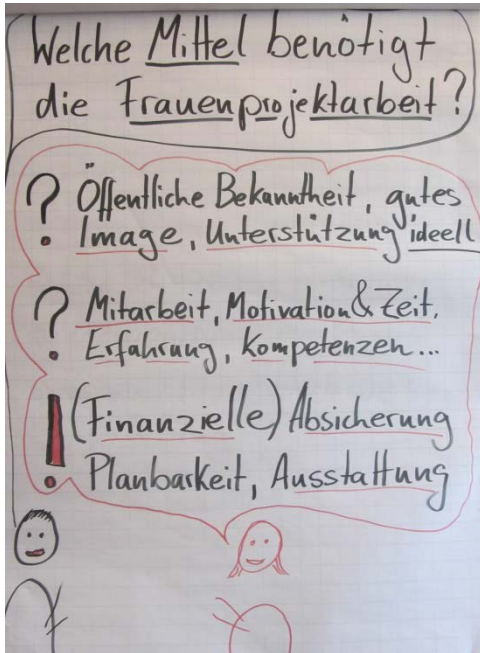 Welche Mittel benötigt
die Frauenprojektarbeit?
? Öffentliche Bekanntheit, gutes
Image, Unterstützung ideell
? Mitarbeit, Motivation & Zeit,
Erfahrung, Kompetenzen...
! (Finanzielle) Absicherung
Planbarkeit, Ausstattung